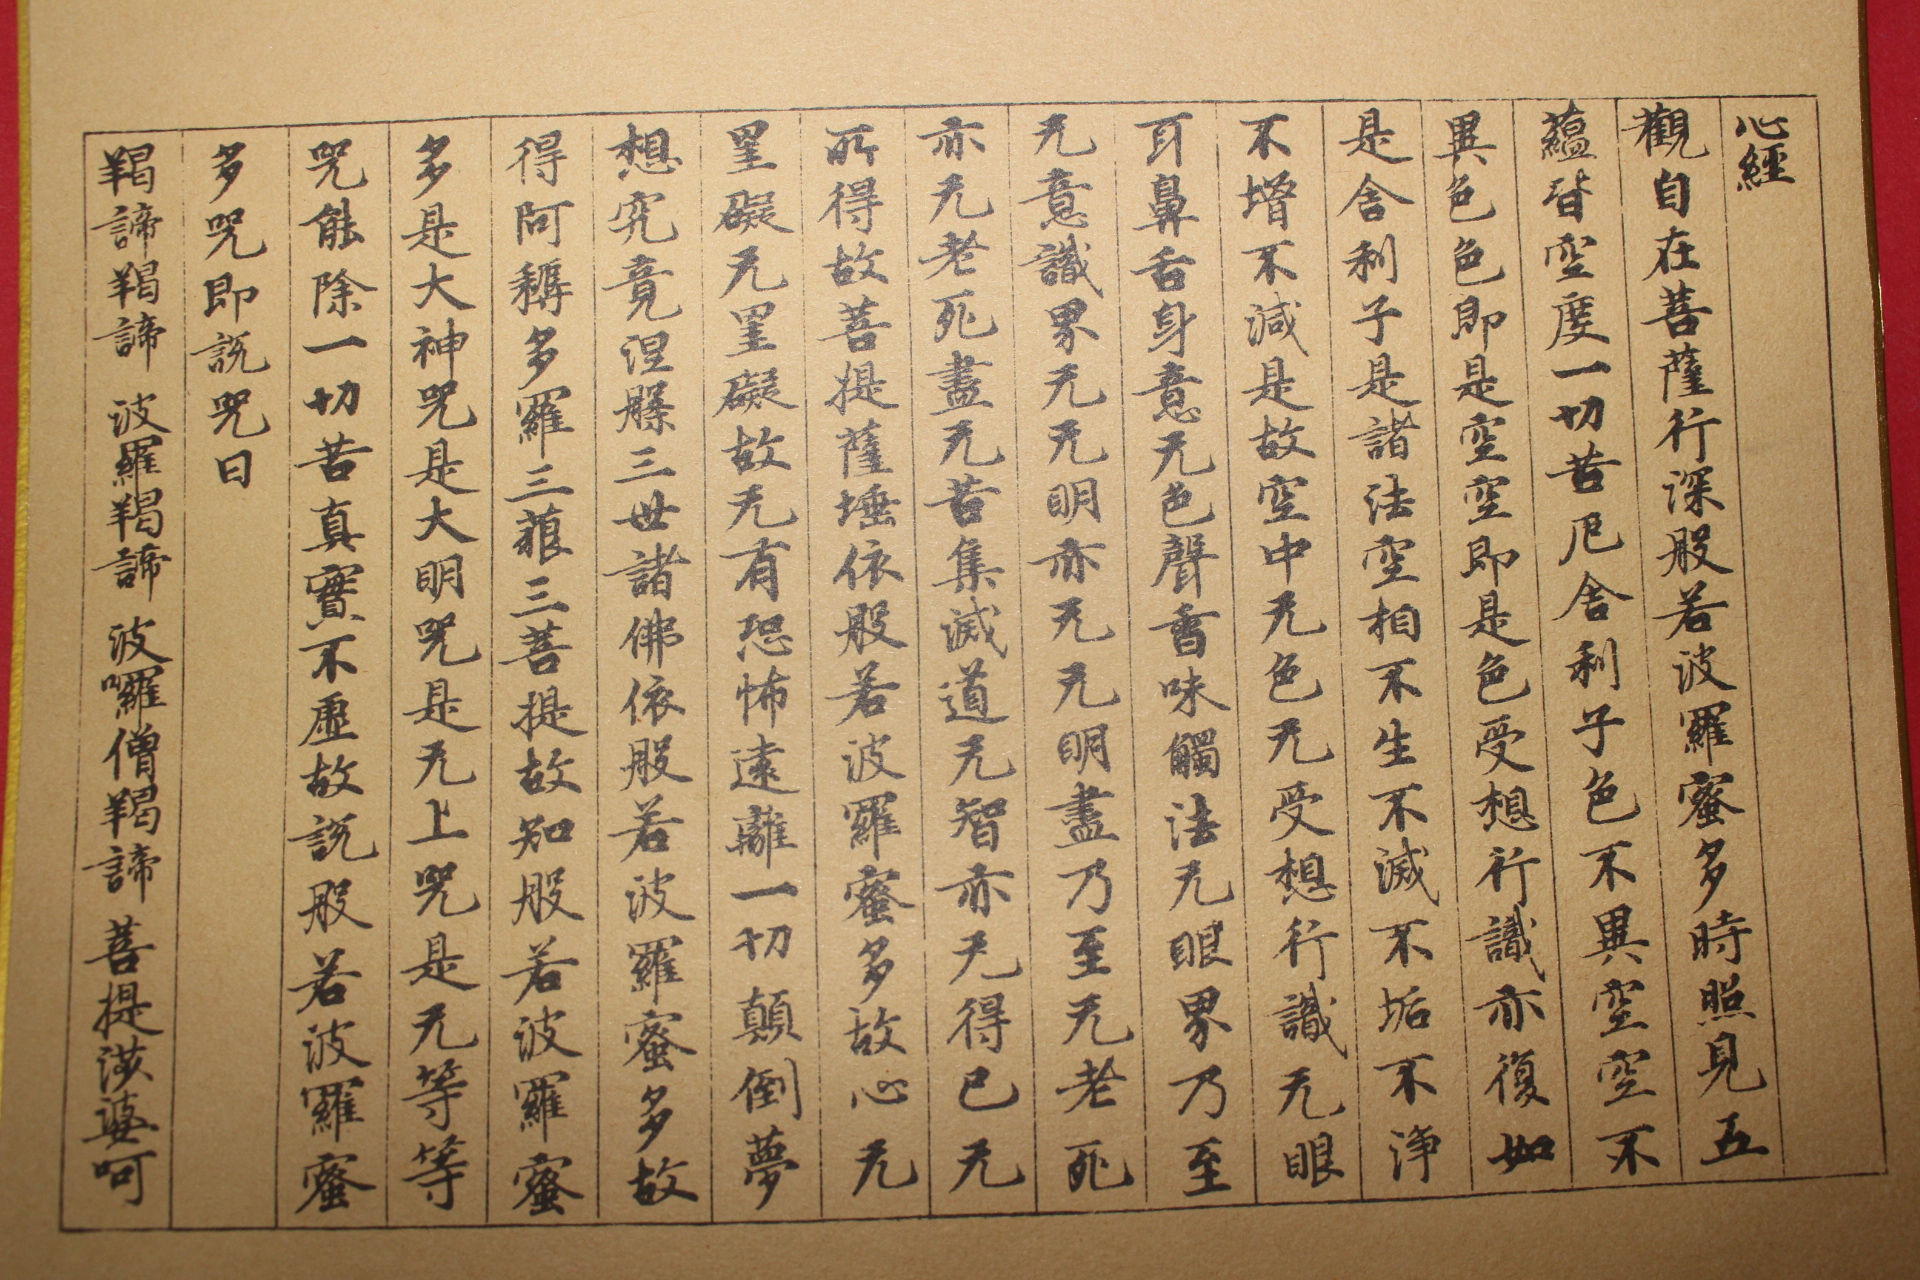 心經
觀自在菩薩行深般若波羅蜜多時照見五
蘊皆空度一切苦厄舍利子色不異空空不
異色色即是空空即是色受想行識亦復如
是舍利子是諸法空相不生不滅不垢不淨
不增不減是故空中无色无受想行識无眼
耳鼻舌身意无色聲香味觸法无眼界乃至
无意識界无无明亦无无明盡乃至无老死
亦无老死盡无苦集滅道无智亦无得已无
所得故菩提薩埵依般若波羅蜜多故心无
罣礙无罣礙故无有恐怖遠離一切顛倒夢
想究竟涅槃三世諸佛依般若波羅蜜多故
得阿耨多羅三藐三菩提故知般若波羅蜜
多是大神咒是大明咒是无上咒是无等等
咒能除一切苦真實不虛故說般若波羅蜜
多咒即說咒曰
羯諦羯諦 波羅羯諦 波囉僧羯諦 菩提婆呵